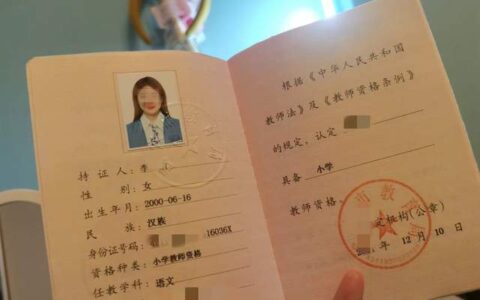 持证人：李
性别：女
出生年月：2000-06-16
民族：汉族
身份证号码：16036X
资格种类：小学教师资格
任教学科：语文
根据《中华人民共和国
教师法》及《教师资格条例》
的规定，认定
具备 小学
教师资格。
机构（公章）
12 月 10 日
市教